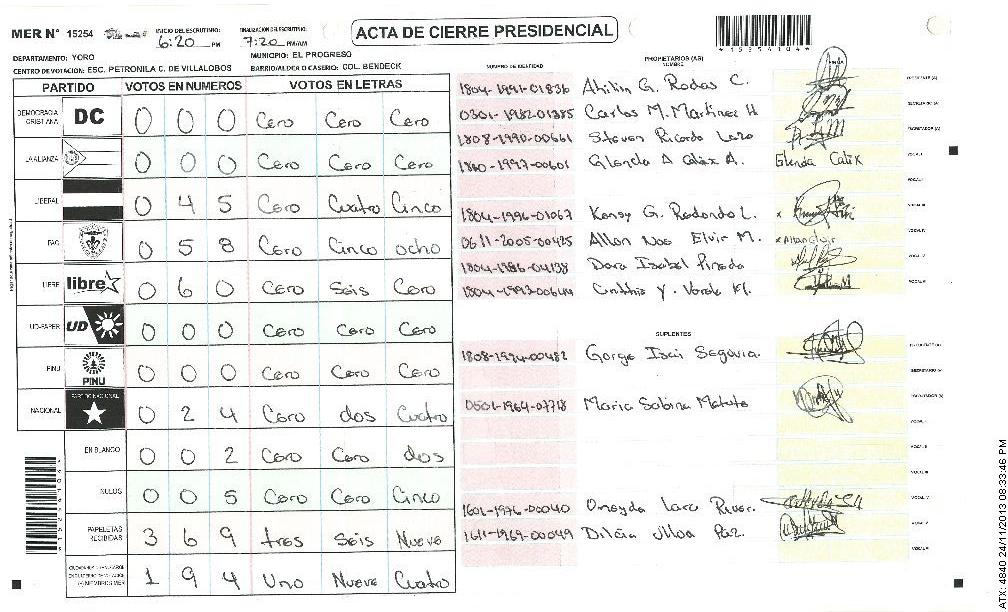 MER N° 15254
INICIO DEL ESCRUTINIO: 6:20 PM
FINALIZACION DEL ESCRUTINIO: 7:20 PM/AM
ACTA DE CIERRE PRESIDENCIAL
*15254104*
DEPARTAMENTO: YORO
MUNICIPIO: EL PROGRESO
CENTRO DE VOTACION: ESC. PETRONILA C. DE VILLALOBOS
BARRIO/ALDEA O CASERIO: COL. BENDECK
PARTIDO VOTOS EN NUMEROS VOTOS EN LETRAS
DEMOCRACIA CRISTIANA DC 0 0 0 Cero Cero Cero
LA ALIANZA 0 0 0 Cero Cero Cero
LIBERAL 0 4 5 Cero Cuatro Cinco
PAC 0 5 8 Cero Cinco ocho
LIBRE libre 0 6 0 Cero Seis Cero
UD-FAPER UD 0 0 0 Cero Cero Cero
PINU PINU 0 0 0 Cero Cero Cero
NACIONAL PARTIDO NACIONAL 0 2 4 Cero dos Cuatro
EN BLANCO 0 0 2 Cero Cero dos
NULOS 0 0 5 Cero Cero Cinco
PAPELETAS RECIBIDAS 3 6 9 tres Seis Nueve
1 9 4 Uno Nueve Cuatro
NUMERO DE IDENTIDAD
PROPIETARIOS (AS)
NOMBRE
FIRMA
1804-1991-01836 G. Rodas C. PRESIDENTE (A)
0301-1982-01385 Carlos M. Martinez H SECRETARIO (A)
1808-1990-00661 Steven Ricardo Lazo ESCRUTADOR (A)
1860-1997-00601 Glenda A Calix A. Glenda Calix VOCAL I
VOCAL II
1804-1996-01067 Kensy G. Redondo L. VOCAL III
0611-2005-00425 Allan Noe Elvir M. VOCAL IV
1804-1986-04138 Dora Isabel Pineda VOCAL V
Cinthia Y.
SUPLENTES
1808-1974-00482 Gorge Isai Segovia.
SECRETARIO (A)
0501-1964-07718 Maria Sabina Matute ESCRUTADOR (A)
VOCAL I
VOCAL II
VOCAL III
1601-1976-00040 Lara VOCAL IV
1611-1969-00049 Paz. VOCAL V
ATX: 4840 24/11/2013 08:33:46 PM